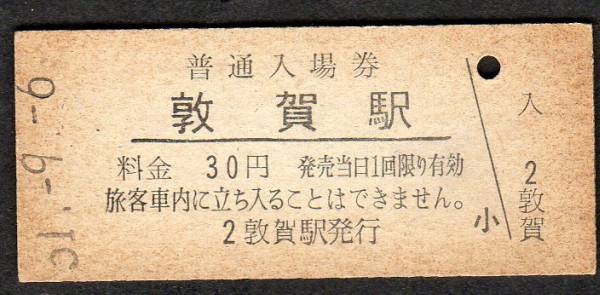 普通入場券
敦賀駅
料金 30円 発売当日1回限り有効
旅客車内に立ち入ることはできません。
2敦賀駅発行
小
入
2敦賀